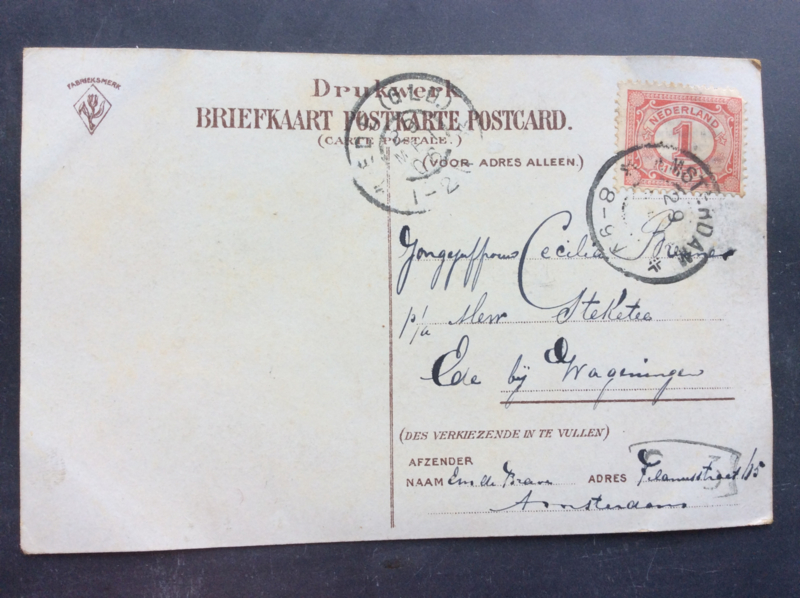 FABRIEKSMERK
Drukwerk
BRIEFKAART POSTKARTE POSTCARD.
(CARTE POSTALE.)
(VOOR ADRES ALLEEN.)
NEDERLAND
1
EDE (GLD.)
1-2
AMSTERDAM
29
6-8
Cecilia
p/a Mevr Steketee
Ede bij Wageningen
(DES VERKIEZENDE IN TE VULLEN)
AFZENDER
NAAM Em de Brave ADRES
Amsterdam